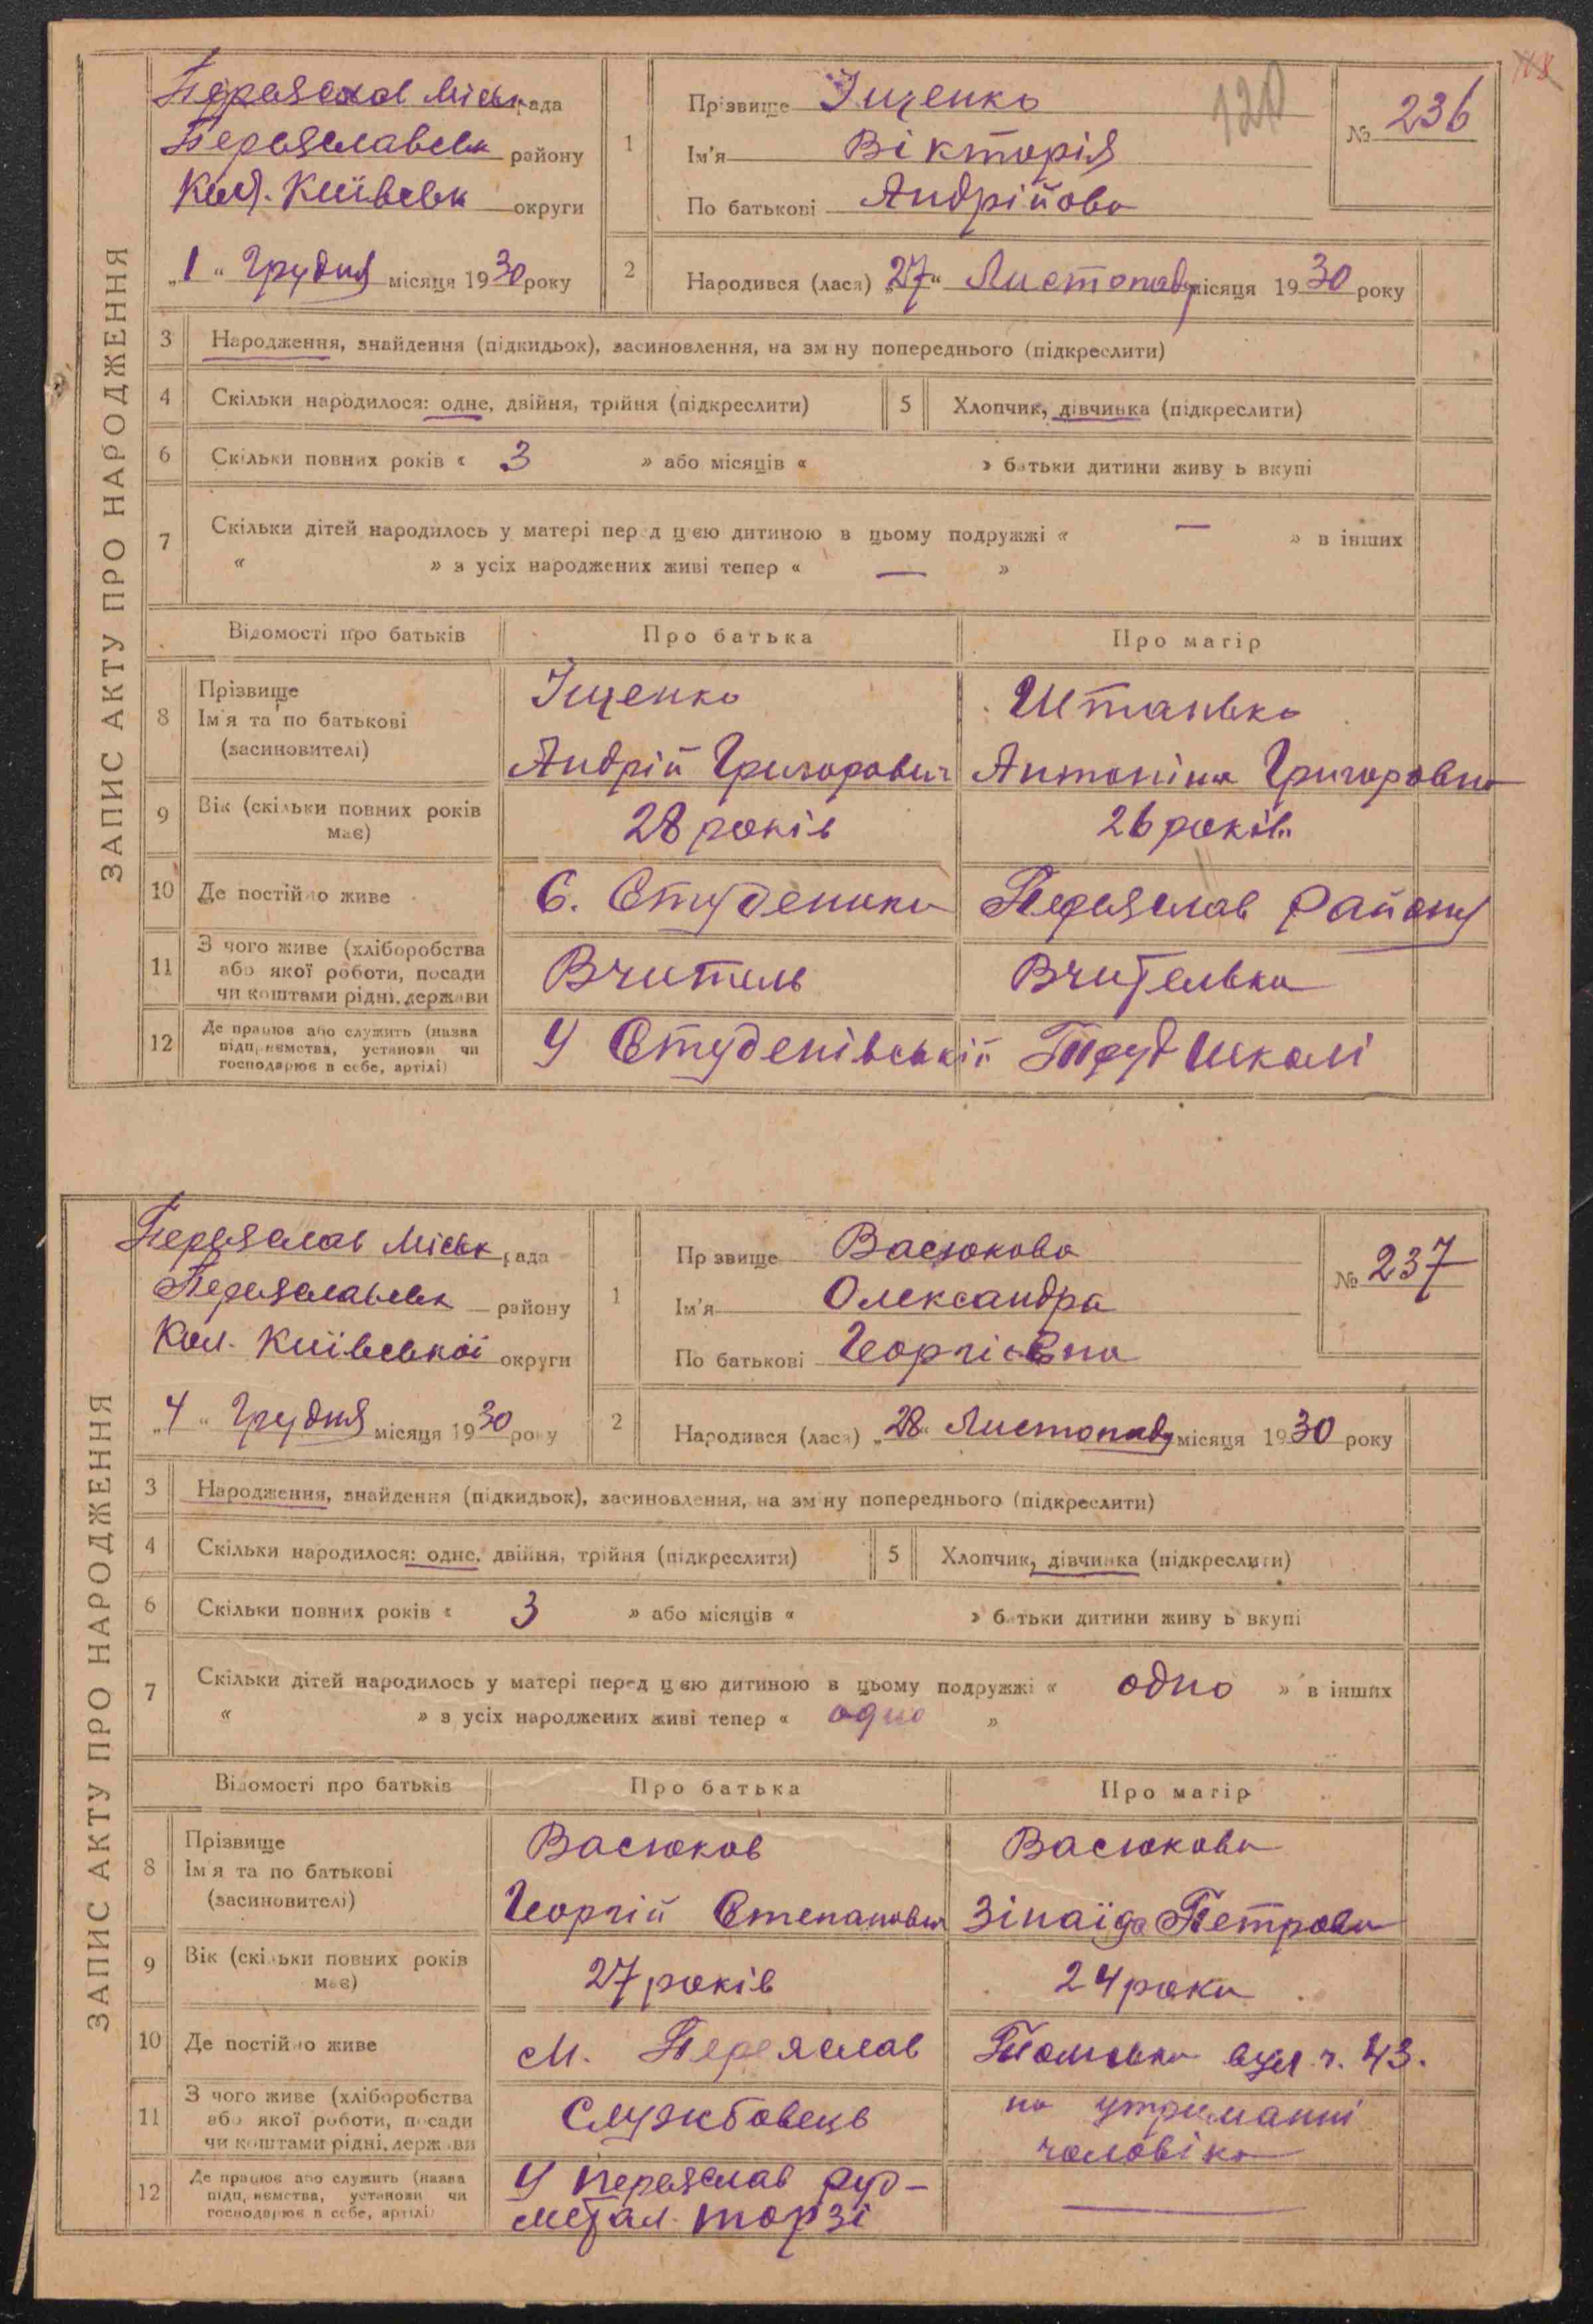 ЗАПИС АКТУ ПРО НАРОДЖЕННЯ
Переяслав Міськ рада
Переяславськ району
Кол. Київськ округи
„1“ Грудня місяця 1930 року
120
1 Прізвище Іщенко
Ім'я Вікторія
По батькові Андрійова
№ 236
2 Народився (лася) „27“ Листопаду місяця 1930 року
3 Народження, знайдення (підкидьох), засиновлення, на зміну попереднього (підкреслити)
4 Скільки народилося: одне, двійня, трійня (підкреслити) 5 Хлопчик, дівчинка (підкреслити)
6 Скільки повних років « 3 » або місяців « » батьки дитини живуть вкупі
7 Скільки дітей народилось у матері перед цією дитиною в цьому подружжі « — » в інших
« » з усіх народжених живі тепер « — »
Відомості про батьків Про батька Про матір
8 Прізвище Іщенко Штанько
Ім'я та по батькові
(засиновителі) Андрій Григорович Антоніна Григоровна
9 Вік (скільки повних років має) 28 років 26 років
10 Де постійно живе С. Студеники Переяслав району
11 З чого живе (хліборобства
або якої роботи, посади Вчитель Вчителька
чи коштами рідні, держави
12 Де працює або служить (назва
підприємства, установи чи У Студенівській Труд школі
господарює в себе, артілі)
ЗАПИС АКТУ ПРО НАРОДЖЕННЯ
Переяслав Міськ рада
Переяславськ району
Кол. Київської округи
„4“ Грудня місяця 1930 року
1 Прізвище Васюкова
Ім'я Олександра
По батькові Георгієвна
№ 237
2 Народився (лася) „28“ Листопаду місяця 1930 року
3 Народження, знайдення (підкидьок), засиновлення, на зміну попереднього (підкреслити)
4 Скільки народилося: одне, двійня, трійня (підкреслити) 5 Хлопчик, дівчинка (підкреслити)
6 Скільки повних років « 3 » або місяців « » батьки дитини живуть вкупі
7 Скільки дітей народилось у матері перед цією дитиною в цьому подружжі « одно » в інших
« » з усіх народжених живі тепер « одно »
Відомості про батьків Про батька Про матір
8 Прізвище Васюков Васюкова
Ім'я та по батькові
(засиновителі) Георгій Степанович Зінаїда Петровн
9 Вік (скільки повних років має) 27 років 24 роки
10 Де постійно живе м. Переяслав вул. ч. 43.
11 З чого живе (хліборобства на утриманні
або якої роботи, посади Службовець
чи коштами рідні, держави чоловіка
12 Де працює або служить (назва У Переяслав руд-
підприємства, установи чи
господарює в себе, артілі) метал. торзі —